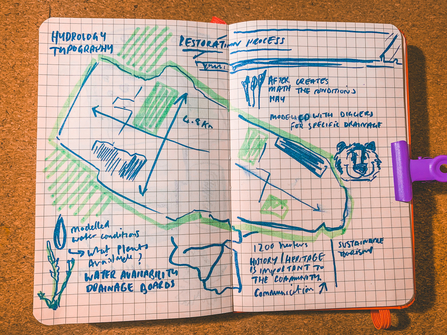 HYDROLOGY
TOPOGRAPHY
RESTORATION PROCESS
AFTER CREATES
MATH THE CONDITIONS
MAY
MODELLED WITH DIGGERS
FOR SPECIFIC DRAINAGE
Modelled
water conditions
→ What plants
available?
WATER AVAILABILITY
DRAINAGE BOARDS
1200 hectares
HISTORY/HERITAGE
IS IMPORTANT TO
THE COMMUNITY.
Communication ↗
SUSTAINABLE
TOURISM